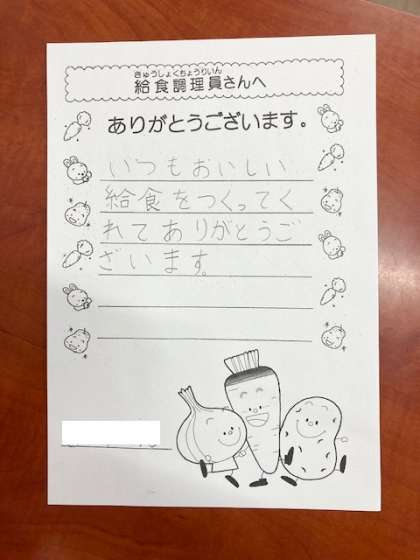 きゅうしょくちょうりいん
給食調理員さんへ
ありがとうございます。
いつもおいしい
給食をつくってく
れてありがとうご
ざいます。